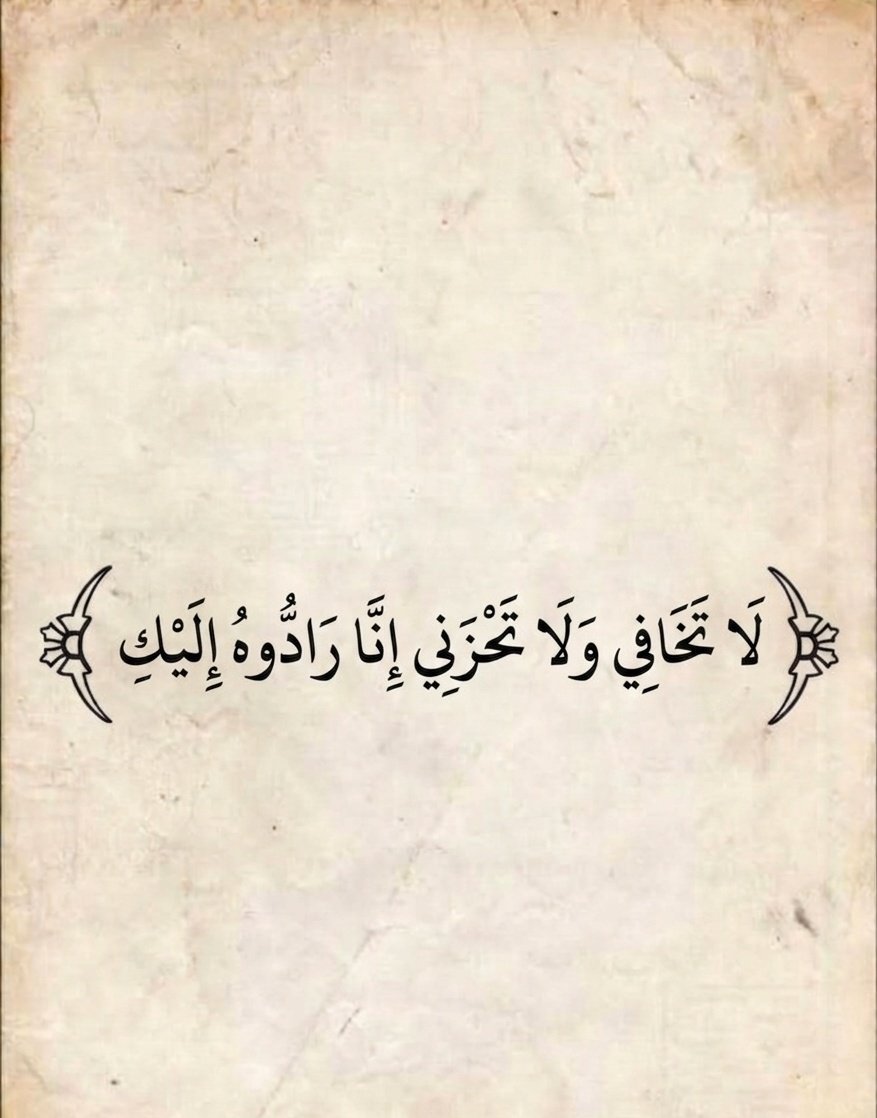 ﴿لَا تَخَافِي وَلَا تَحْزَنِي إِنَّا رَادُّوهُ إِلَيْكِ﴾